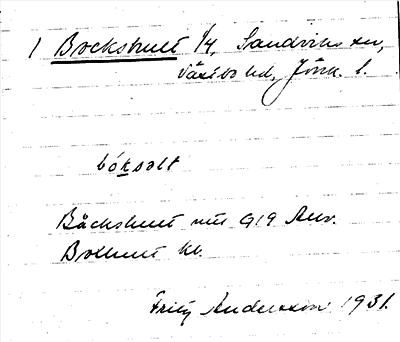 1 Bockshult 1/4, Sandviks sn,
Västbo hd, Jönk. l.
bóksolt
Båckshult 919 Anv.
Bollhult kb.
Fritz Andersson 1931.